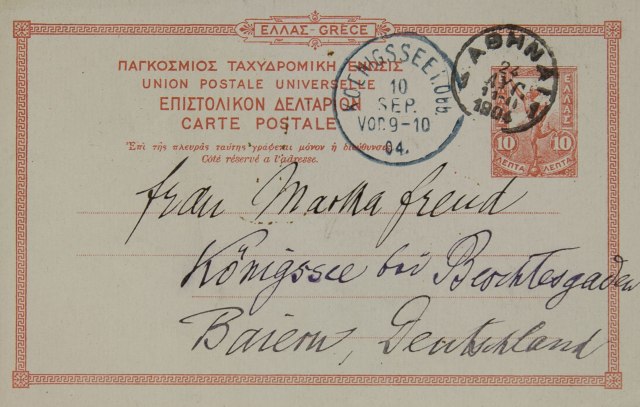 ΕΛΛΑΣ-GRÈCE
ΠΑΓΚΟΣΜΙΟΣ ΤΑΧΥΔΡΟΜΙΚΗ ΕΝΩΣΙΣ
UNION POSTALE UNIVERSELLE
ΕΠΙΣΤΟΛΙΚΟΝ ΔΕΛΤΑΡΙΟΝ
CARTE POSTALE
Ἐπὶ τῆς πλευρᾶς ταύτης γράφεται μόνον ἡ διεύθυνσις
Côté réservé a l'adresse.
KOENIGSSEE
10
SEP.
VOR9-10
04.
ΑΘΗΝΑΙ
ΑΥΓ
1904
ΕΛΛΑΣ
10 10
ΛΕΠΤΑ ΛΕΠΤΑ
Frau Martha Freud
Königssee bei Berchtesgaden
Baiern, Deutschland